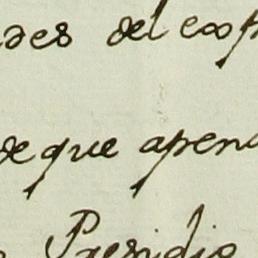 des del exp
de que apena
Presidio